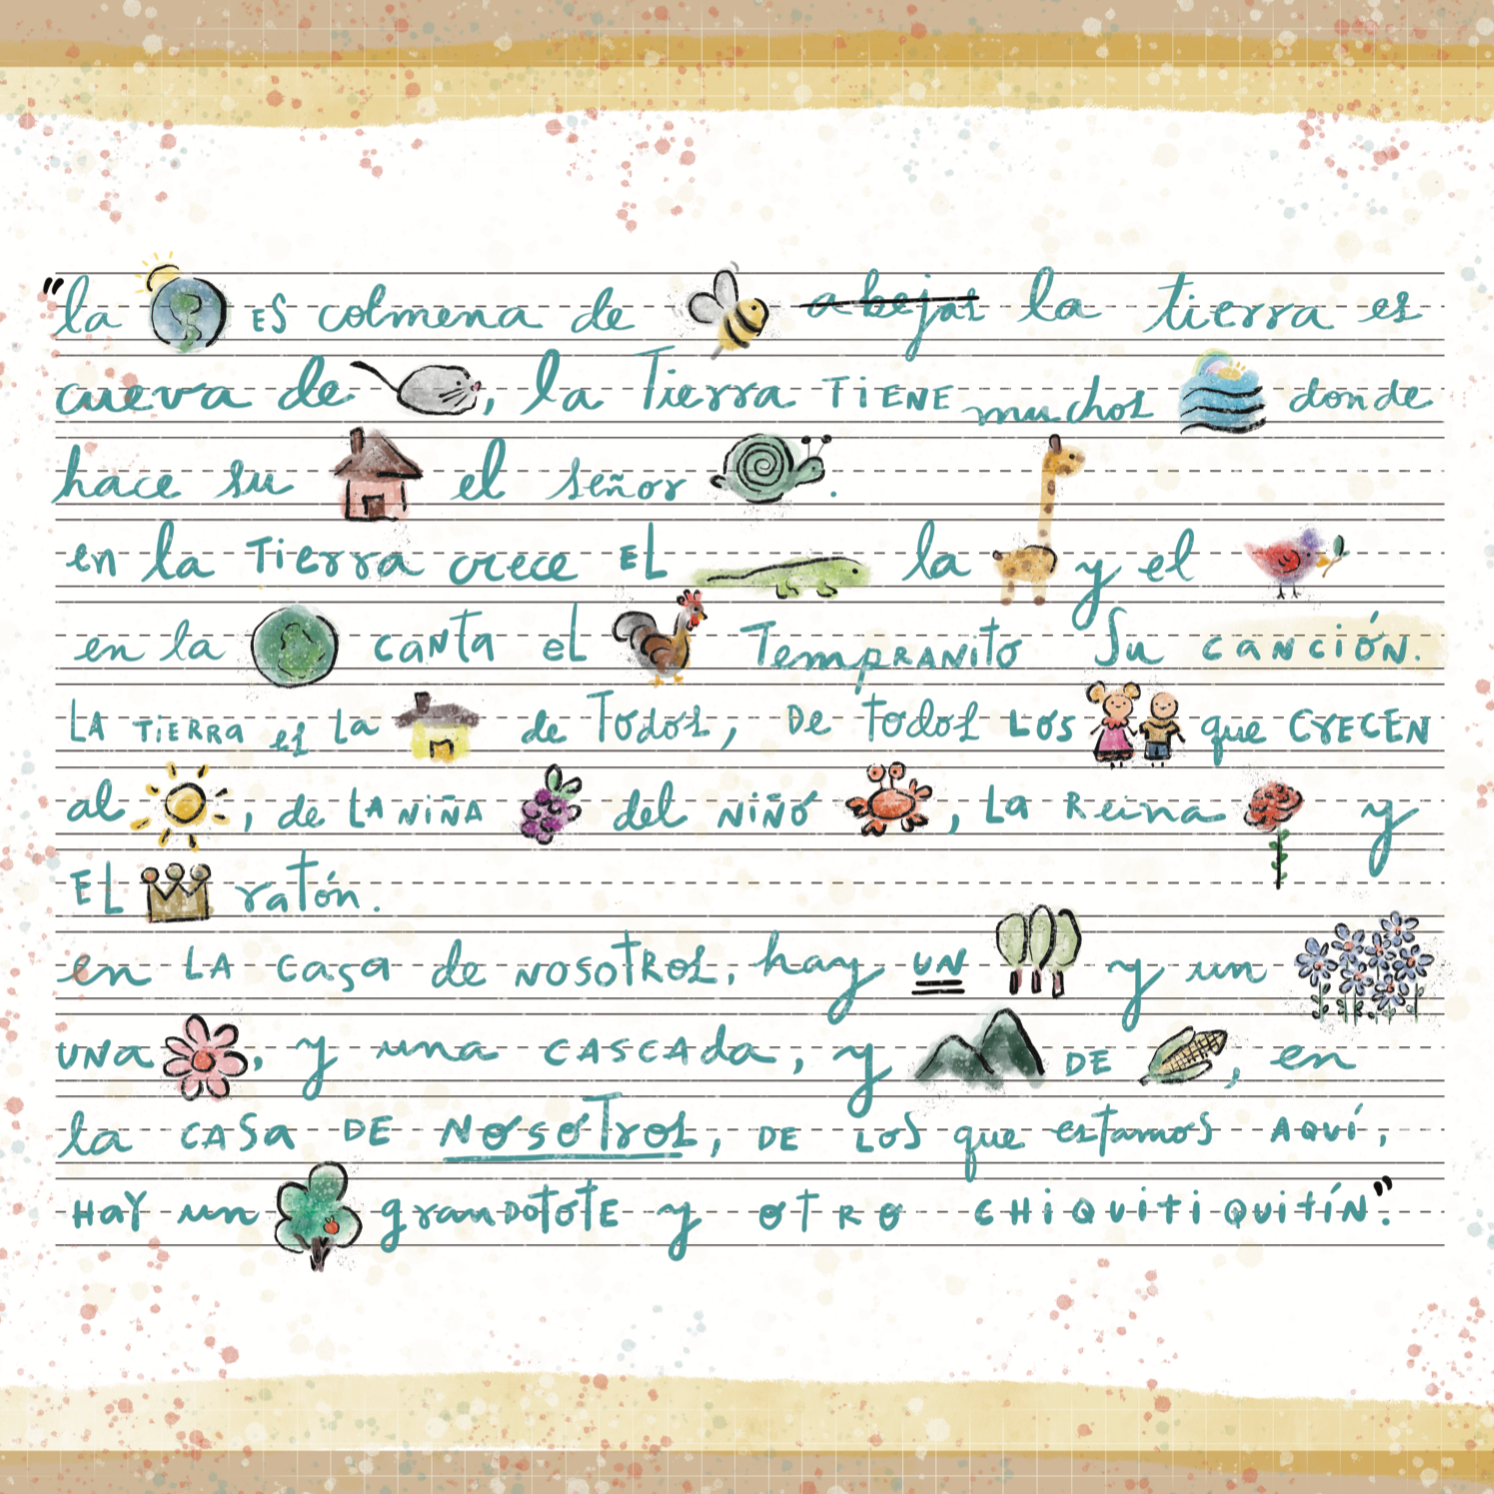 "la es colmena de abejas la tierra es
cueva de , la Tierra TIENE muchos donde
hace su el señor .
en la Tierra crece EL la y el
en la canta el TempRANito Su canción.
LA TIERRA es La de Todos, De todos LOS que CRECEN
al , de LA NIÑA del NIÑO , La Reina y
EL ratón.
en LA casa de NOSOTROS, hay UN y un
UNa , y una CASCADa, y DE , en
la CASa DE NOSOTROS, DE LOS que estamos AQUÍ,
HaY un granDOtoTE y OTRO CHIQUITIQUITÍN".